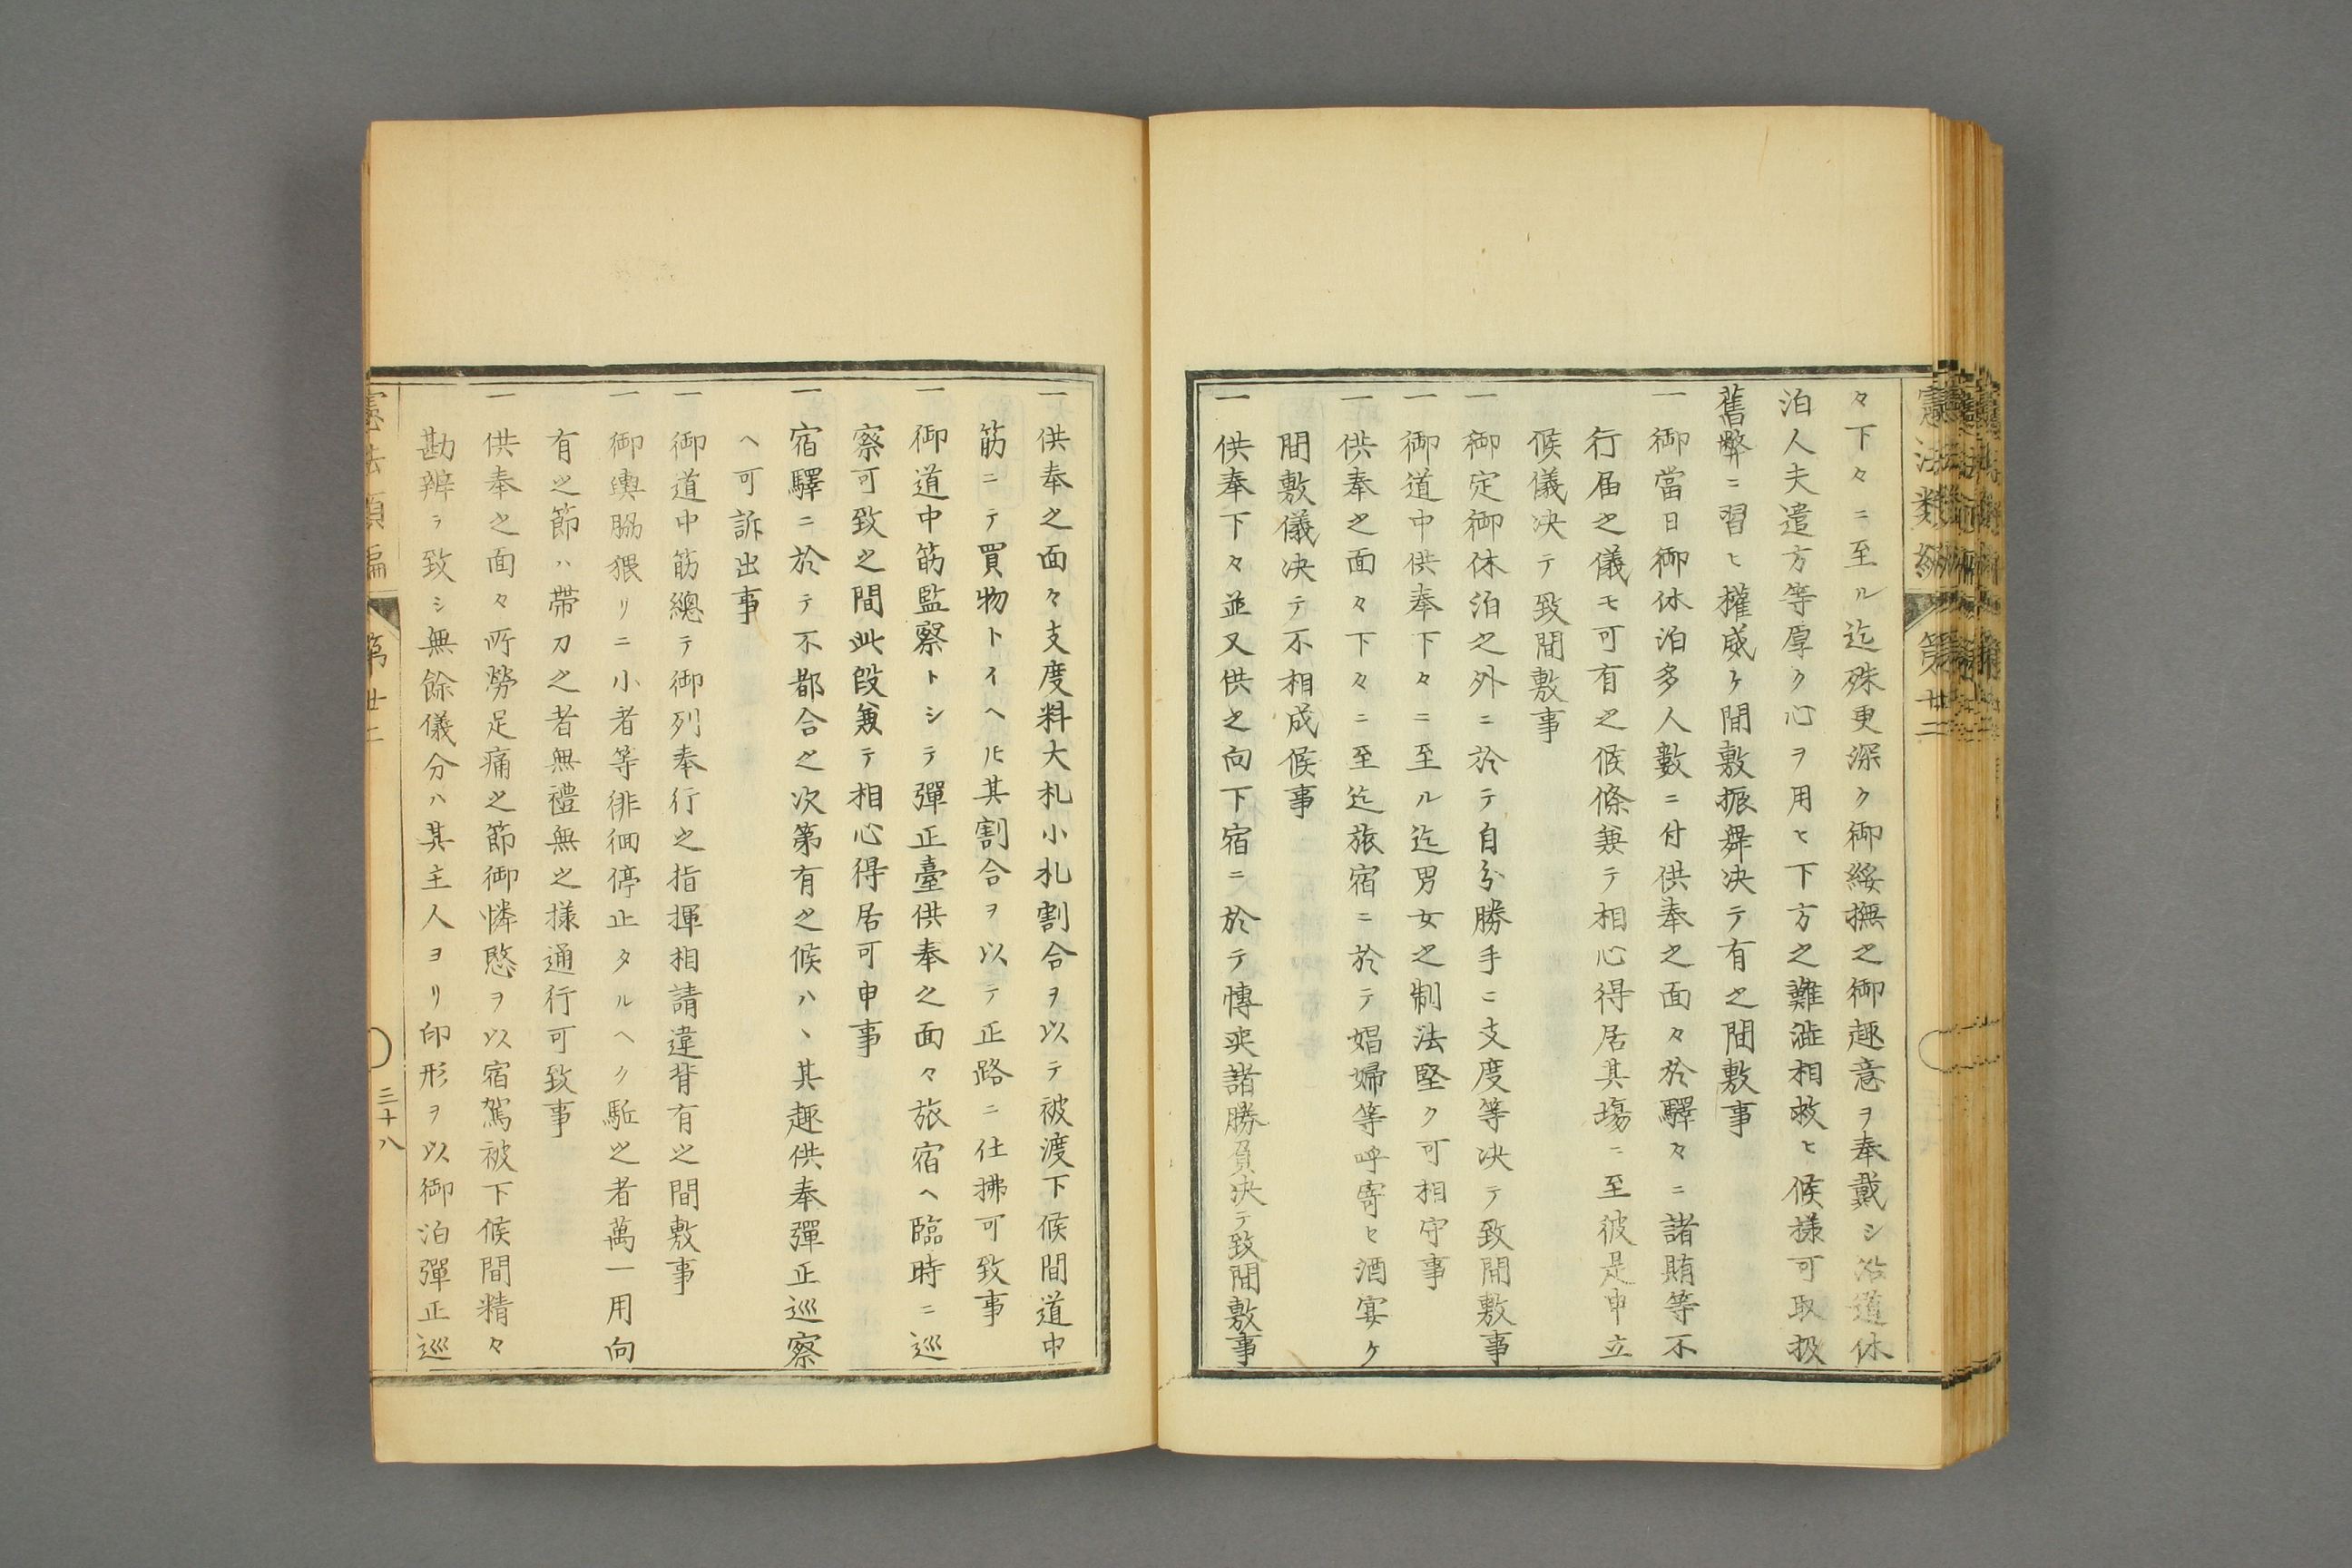 憲法類編 第廿二
々下々ニ至ル迄殊更深ク御綏撫之御趣意ヲ奉戴シ沿道休
泊人夫遣方等厚ク心ヲ用ヒ下方之難澁相救ヒ候様可取扱
舊弊ニ習ヒ權威ケ間敷振舞决テ有之間敷事
一御當日御休泊多人數ニ付供奉之面々於驛々ニ諸賄等不
行届之儀モ可有之候條兼テ相心得居其塲ニ至彼是申立
候儀决テ致間敷事
一御定御休泊之外ニ於テ自分勝手ニ支度等决テ致間敷事
一御道中供奉下々ニ至ル迄男女之制法堅ク可相守事
一供奉之面々下々ニ至迄旅宿ニ於テ娼婦等呼寄セ酒宴ケ
間敷儀决テ不相成候事
一供奉下々並又供之向下宿ニ於テ博奕諸勝負决テ致間敷事
一供奉之面々支度料大札小札割合ヲ以テ被渡下候間道中
筋ニテ買物トイヘ𪜈其割合ヲ以テ正路ニ仕拂可致事
一御道中筋監察トシテ彈正臺供奉之面々旅宿ヘ臨時ニ巡
察可致之間此段兼テ相心得居可申事
一宿驛ニ於テ不都合之次第有之候ハヽ其趣供奉彈正巡察
ヘ可訴出事
一御道中筋總テ御列奉行之指揮相請違背有之間敷事
一御輿脇猥リニ小者等徘徊停止タルヘク駈之者萬一用向
有之節ハ帶刀之者無禮無之様通行可致事
一供奉之面々所勞足痛之節御憐愍ヲ以宿駕被下候間精々
勘辨ヲ致シ無餘儀分ハ其主人ヨリ印形ヲ以御泊彈正巡
憲法類編 第廿二 三十八